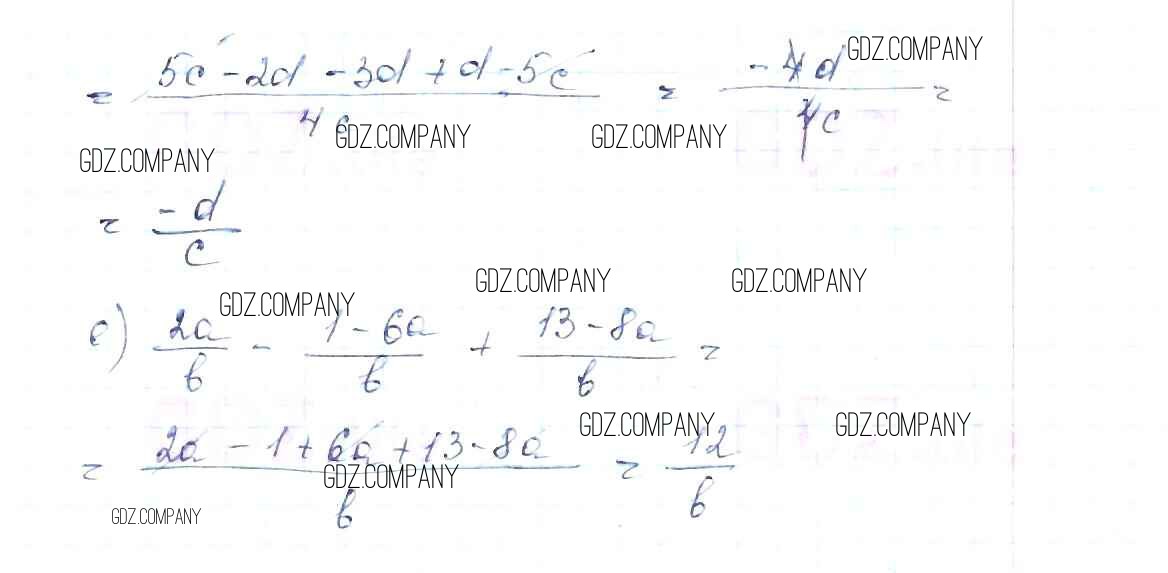 = (5c - 2d - 3d + d - 5c) / 4c = -4d / 4c = GDZ.COMPANY
GDZ.COMPANY GDZ.COMPANY GDZ.COMPANY
= -d / c
GDZ.COMPANY GDZ.COMPANY GDZ.COMPANY
е) 2a / b - (1 - 6a) / b + (13 - 8a) / b =
GDZ.COMPANY GDZ.COMPANY
= (2a - 1 + 6a + 13 - 8a) / b = 12 / b
GDZ.COMPANY
GDZ.COMPANY